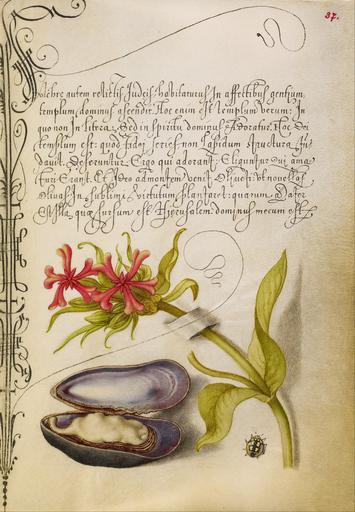 37.
autem relictis Judeis habitaturus In affectibus gentium
templum dominus ascendit. Hoc enim est templum verum: In
quo non In litera; Sed in spiritu dominus Adoratur. Hoc Dei
templum est: quod fidei series non lapidum structura fun
dauit. Deseruntur Ergo qui aderant: Eliguntur qui ama
turi Erant. Et Ideo ad montem venit Oliueti: vt nouellas
Oliuas In sublimi virtutum plantaret: quarum Mater
Est Illa quæ sursum est Hierusalem: dominus mecum est